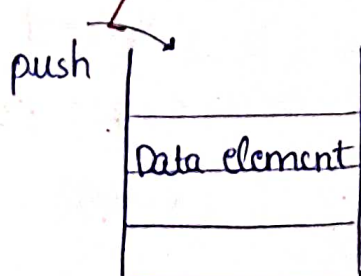 push
Data element